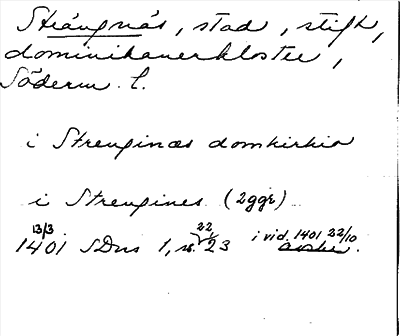 Strängnäs, stad, stift,
dominikanerkloster,
Söderm. l.
i Strenginæs domkirkio
i Strengines (2ggr)
13/3 1401 SDns 1, nr. 23 22 i vid. 1401 22/10